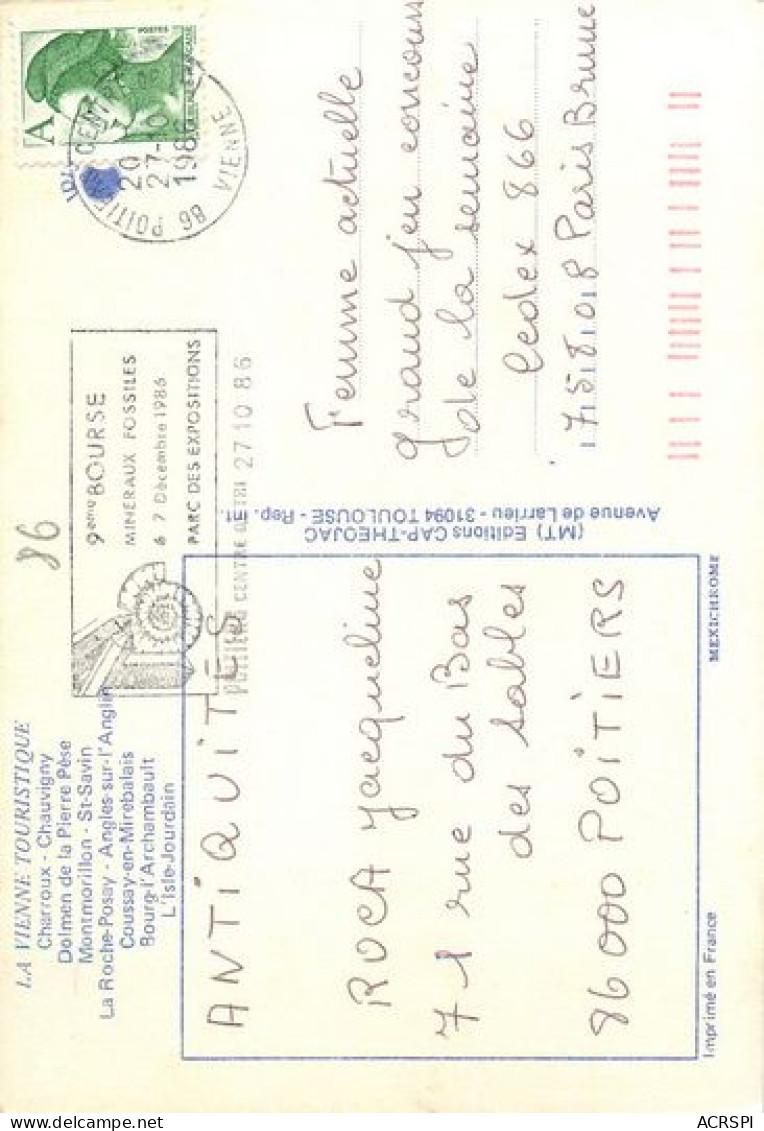 LA VIENNE TOURISTIQUE
Charroux - Chauvigny
Dolmen de la Pierre Pèse
Montmorillon - St-Savin
La Roche-Posay - Angles-sur-l'Anglin
Coussay-en-Mirebalais
Bourg-l'Archambault
L'Isle-Jourdain
86
9eme BOURSE
MINERAUX FOSSILES
6 7 Décembre 1986
PARC DES EXPOSITIONS
27 10 86
A
POSTES
20
27-10
1986
86 POITIERS
VIENNE
ANTIQUITÉS
ROCA Jacqueline
71 rue du Bas
des sables
86000 POITIERS
(MT) Editions CAP-THEOJAC
Avenue de Larrieu - 31094 TOULOUSE - Rep. int.
Femme actuelle
grand jeu concours
de la semaine
Cedex 866
75808 Paris Brune
Imprimé en France
MEXICHROME
ACRSPI